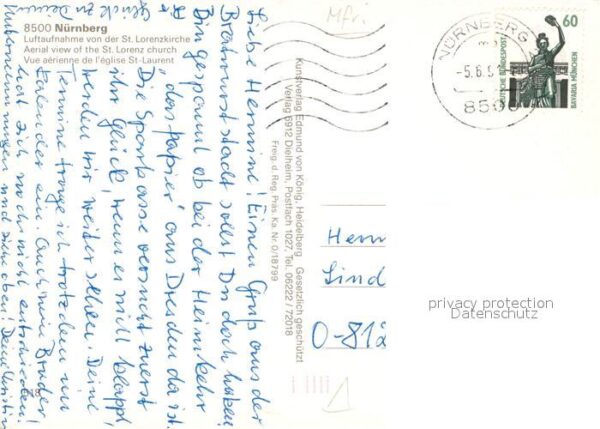 8500 Nürnberg
Luftaufnahme von der St. Lorenzkirche
Aerial view of the St. Lorenz church
Vue aérienne de l'église St-Laurent
Mfr.
Liebe Hermine! Einen Gruß aus der
Bratwurststadt sollst Du doch haben.
Bin gespannt ob bei der Heimkehr
"das Papier" aus Dresden da ist.
Die Sparkasse versucht zuerst
ihr Glück, wenn es nicht klappt,
werden wir weiter sehen. Deine
Termine trage ich trotzdem im
Kalender ein. Auch mein Bruder
hat sich noch nicht entschieden!
und siehe oben! Deine
Glück zu Deinen
18
Kunstverlag Edmund von König, Heidelberg Gesetzlich geschützt
Verlag 6912 Dielheim, Postfach 1027, Tel. 06222 / 72018
Freig. d. Reg. Präs. Ka. Nr. 0/18799
NÜRNBERG
-5.6.9
8500
60
DEUTSCHE BUNDESPOST
BAVARIA MÜNCHEN
Herm
Lind
O-812
privacy protection
Datenschutz